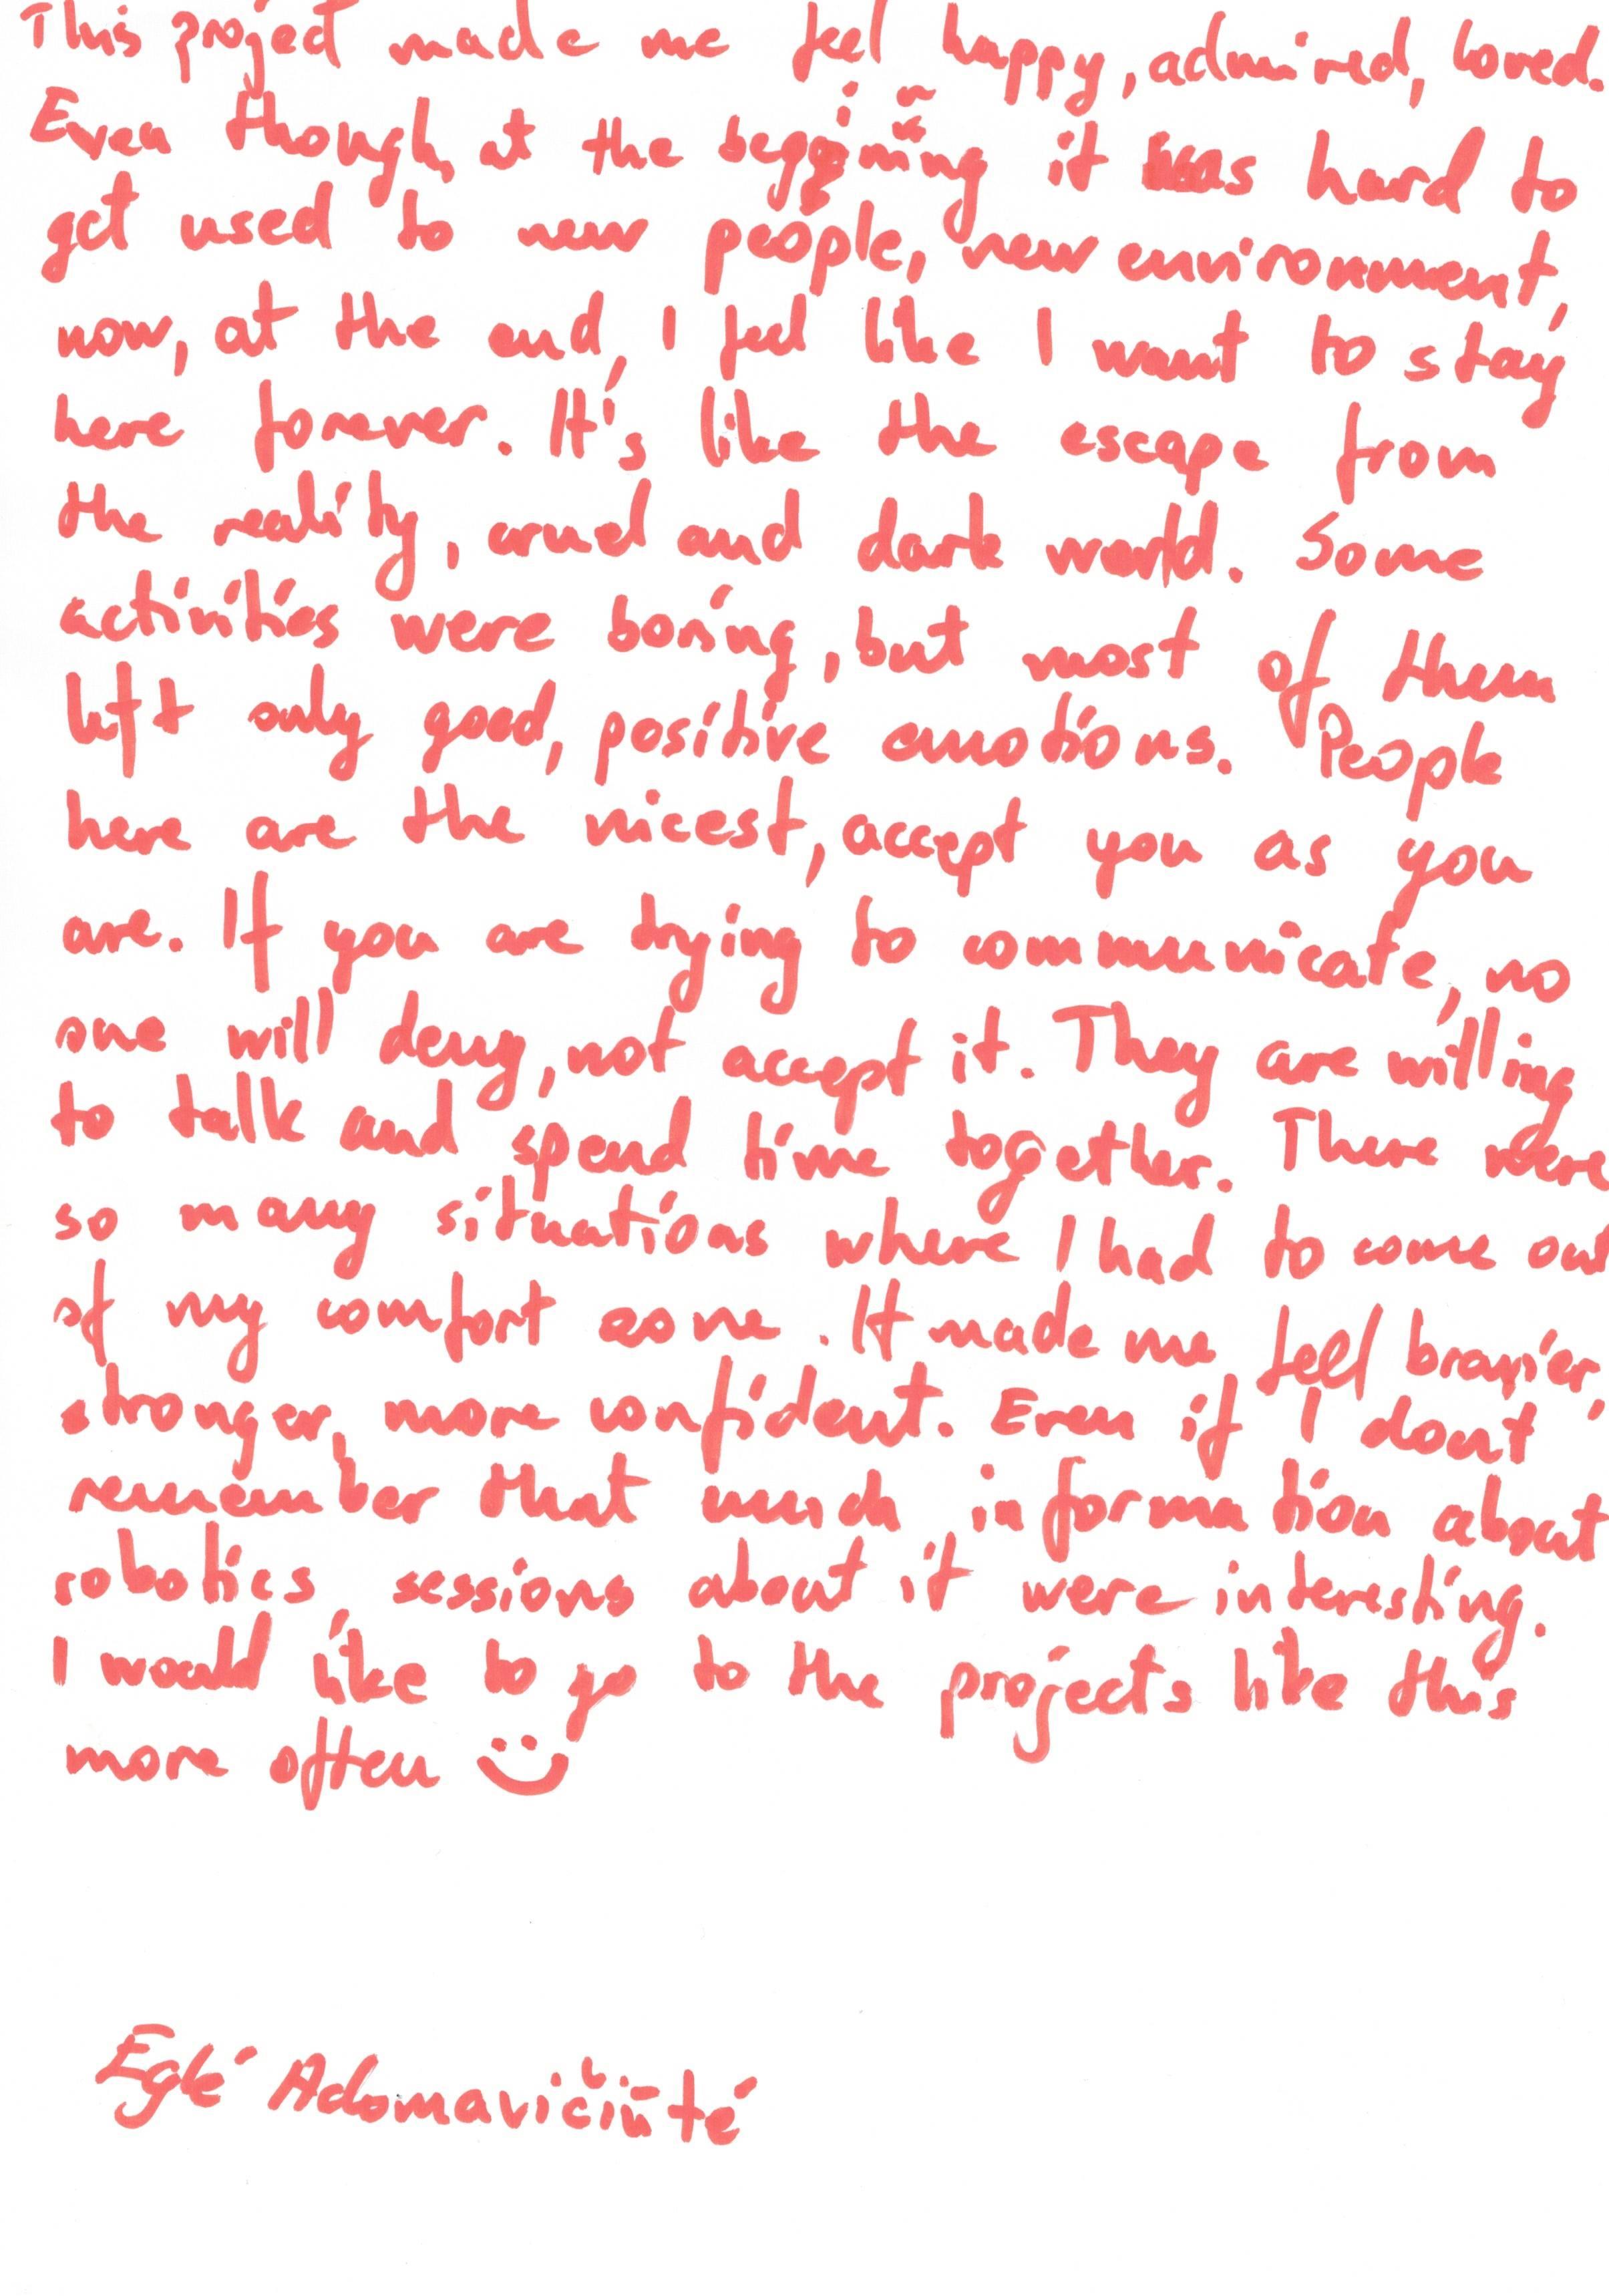 This project made me feel happy, admired, loved.
Even though, at the beginning it was hard to
get used to new people, new environment,
now, at the end, I feel like I want to stay
here forever. It's like the escape from
the reality, cruel and dark world. Some
activities were boring, but most of them
left only good, positive emotions. People
here are the nicest, accept you as you
are. If you are trying to communicate, no
one will deny, not accept it. They are willing
to talk and spend time together. There were
so many situations where I had to come out
of my comfort zone. It made me feel bravier,
stronger, more confident. Even if I dont
remember that much information about
robotics sessions about it were interesting.
I would like to go to the projects like this
more often
Eglė Adomavičiūtė